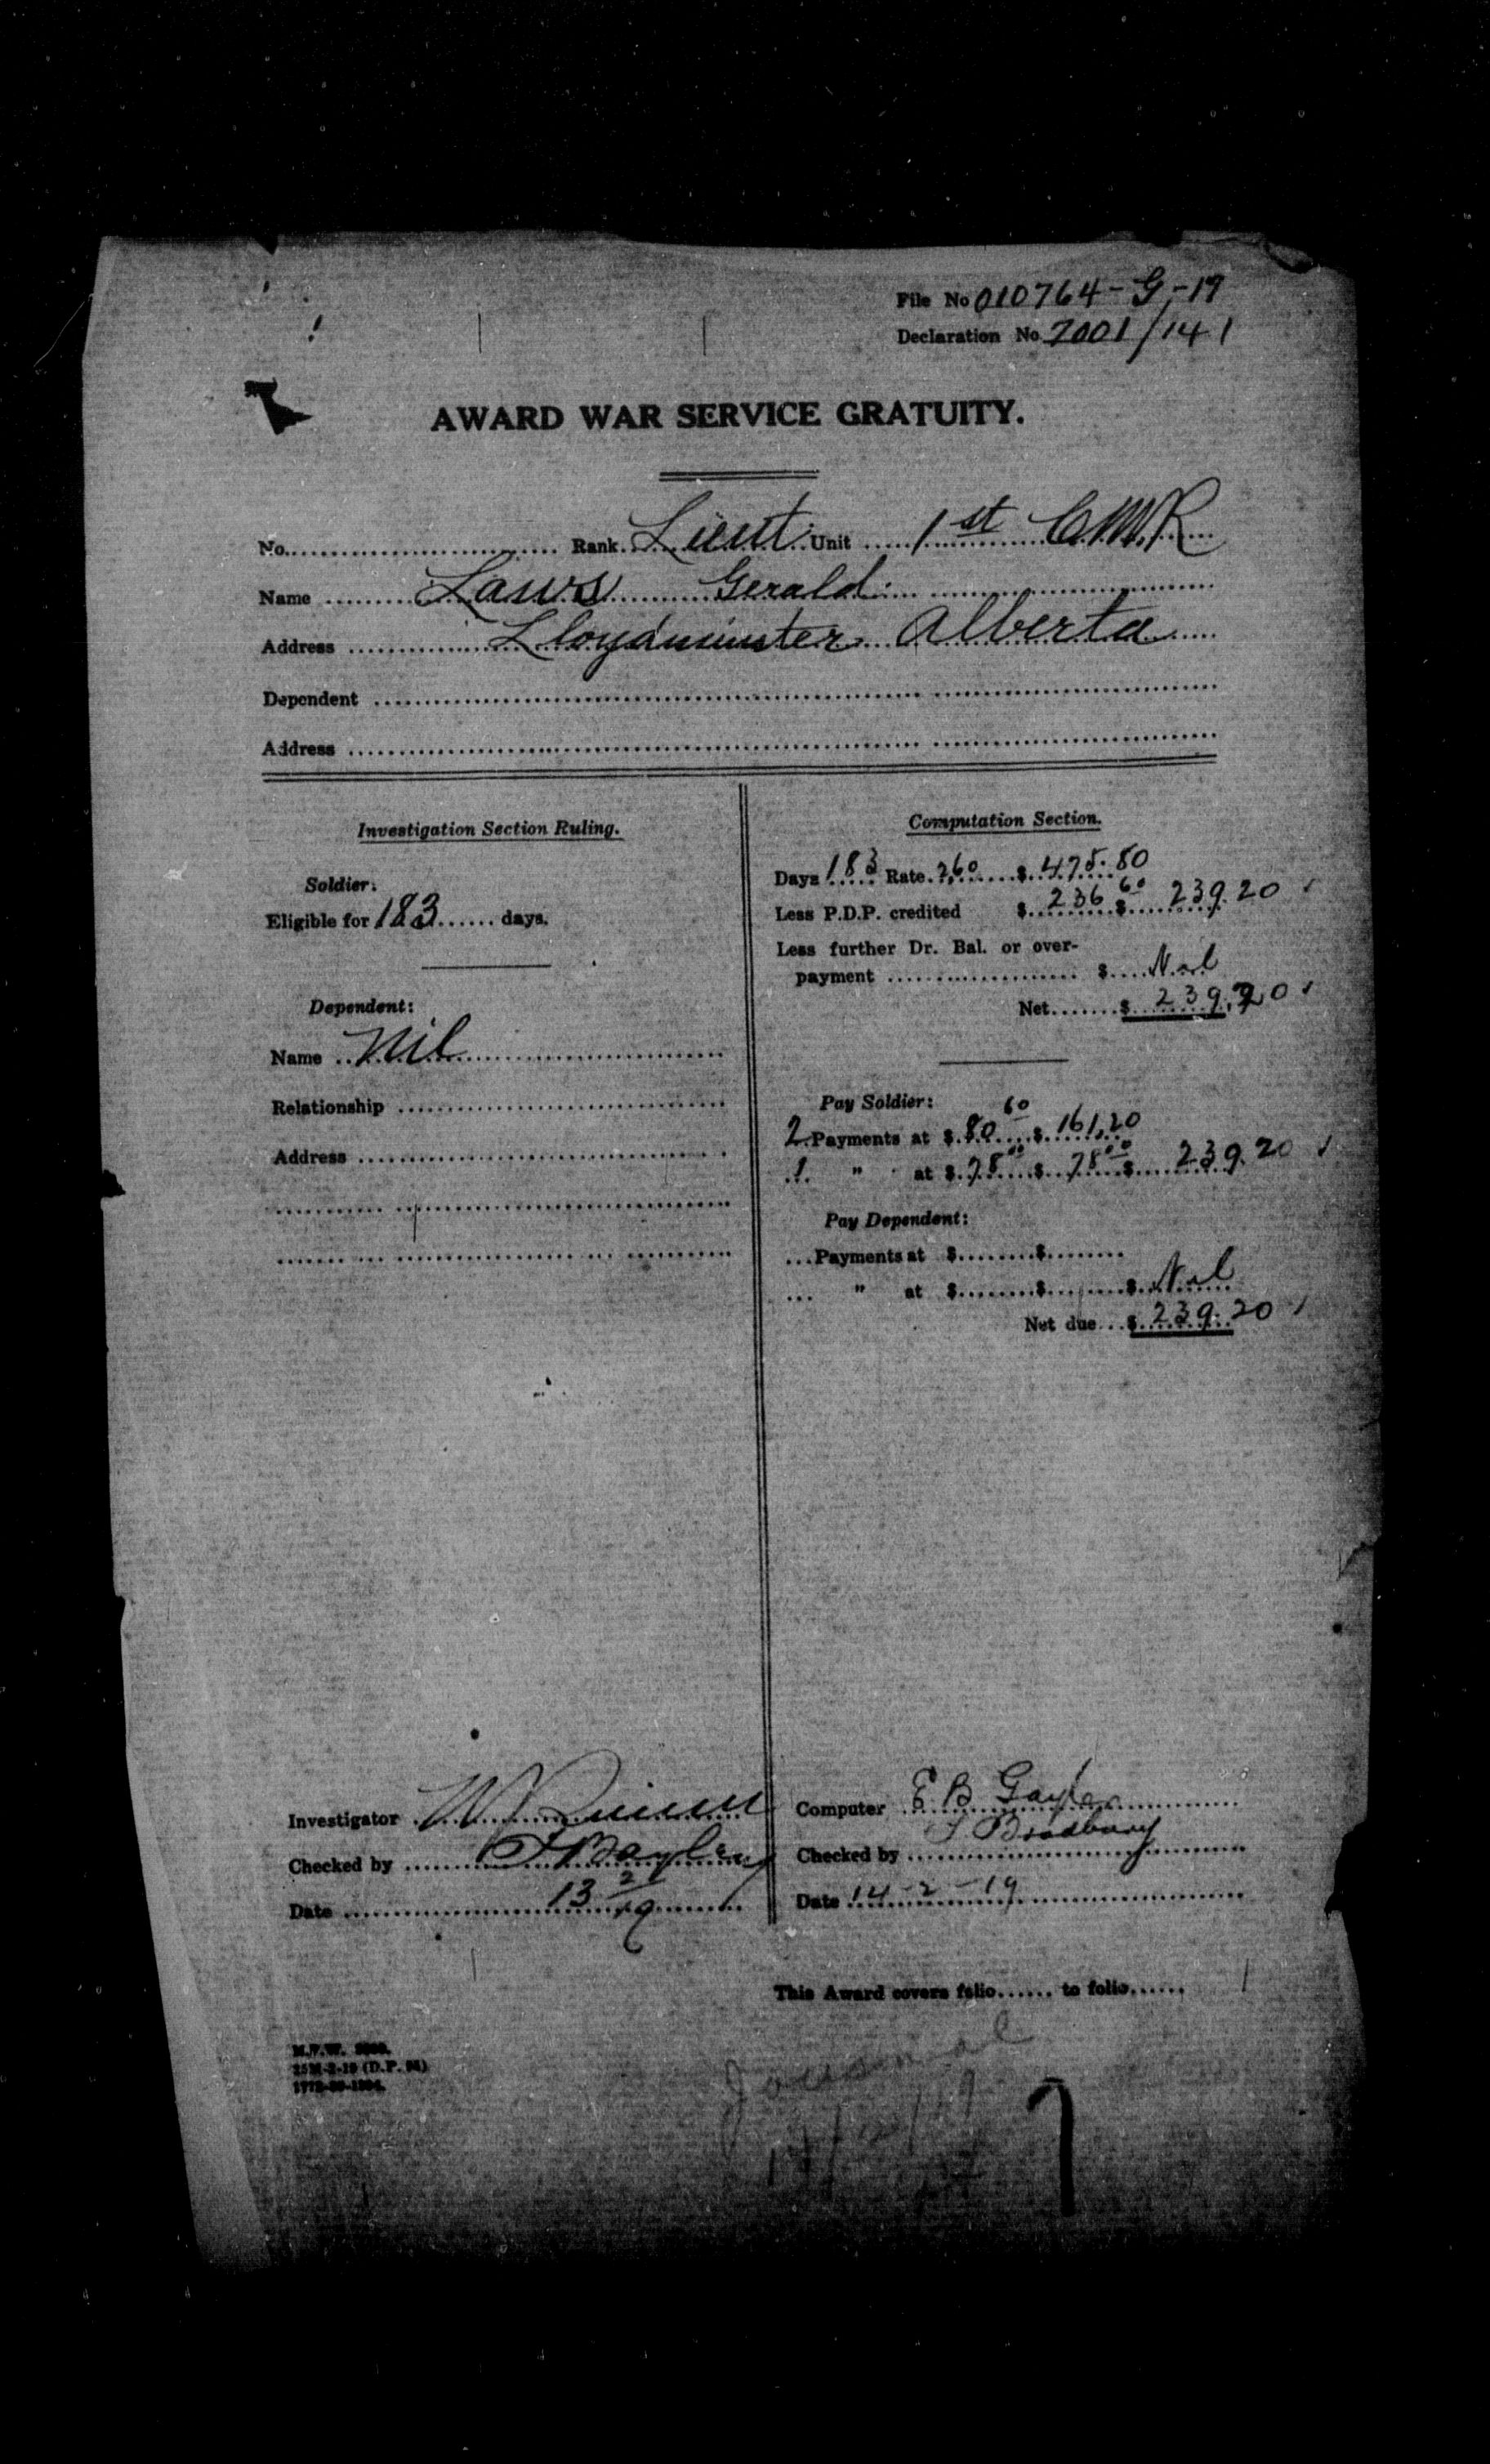 File No 010764-G-19
Declaration No. 7001/141
AWARD WAR SERVICE GRATUITY.
No. Rank. Lieut. Unit 1st C.M.R.
Name Laws Gerald
Address Lloydminster Alberta
Dependent
Address
Investigation Section Ruling.
Soldier:
Eligible for 183 days.
Dependent:
Name Nil
Relationship
Address
Computation Section.
Days 183 Rate 2.60 $ 475.80
Less P.D.P. credited $ 236 60 $ 239.20
Less further Dr. Bal. or over-
payment $ Nil
Net $ 239.20
Pay Soldier:
2 Payments at $ 80 60 $ 161.20
1 " at $ 78 00 $ 78 00 $ 239.20
Pay Dependent:
Payments at $ $
" at $ $ $ Nil
Net due $ 239.20
Investigator
Checked by
Date 13 2/19
Computer E B
Checked by Bradbury
Date 14-2-19
This Award covers folio to folio
25M-2-19 (D.P.
Journal